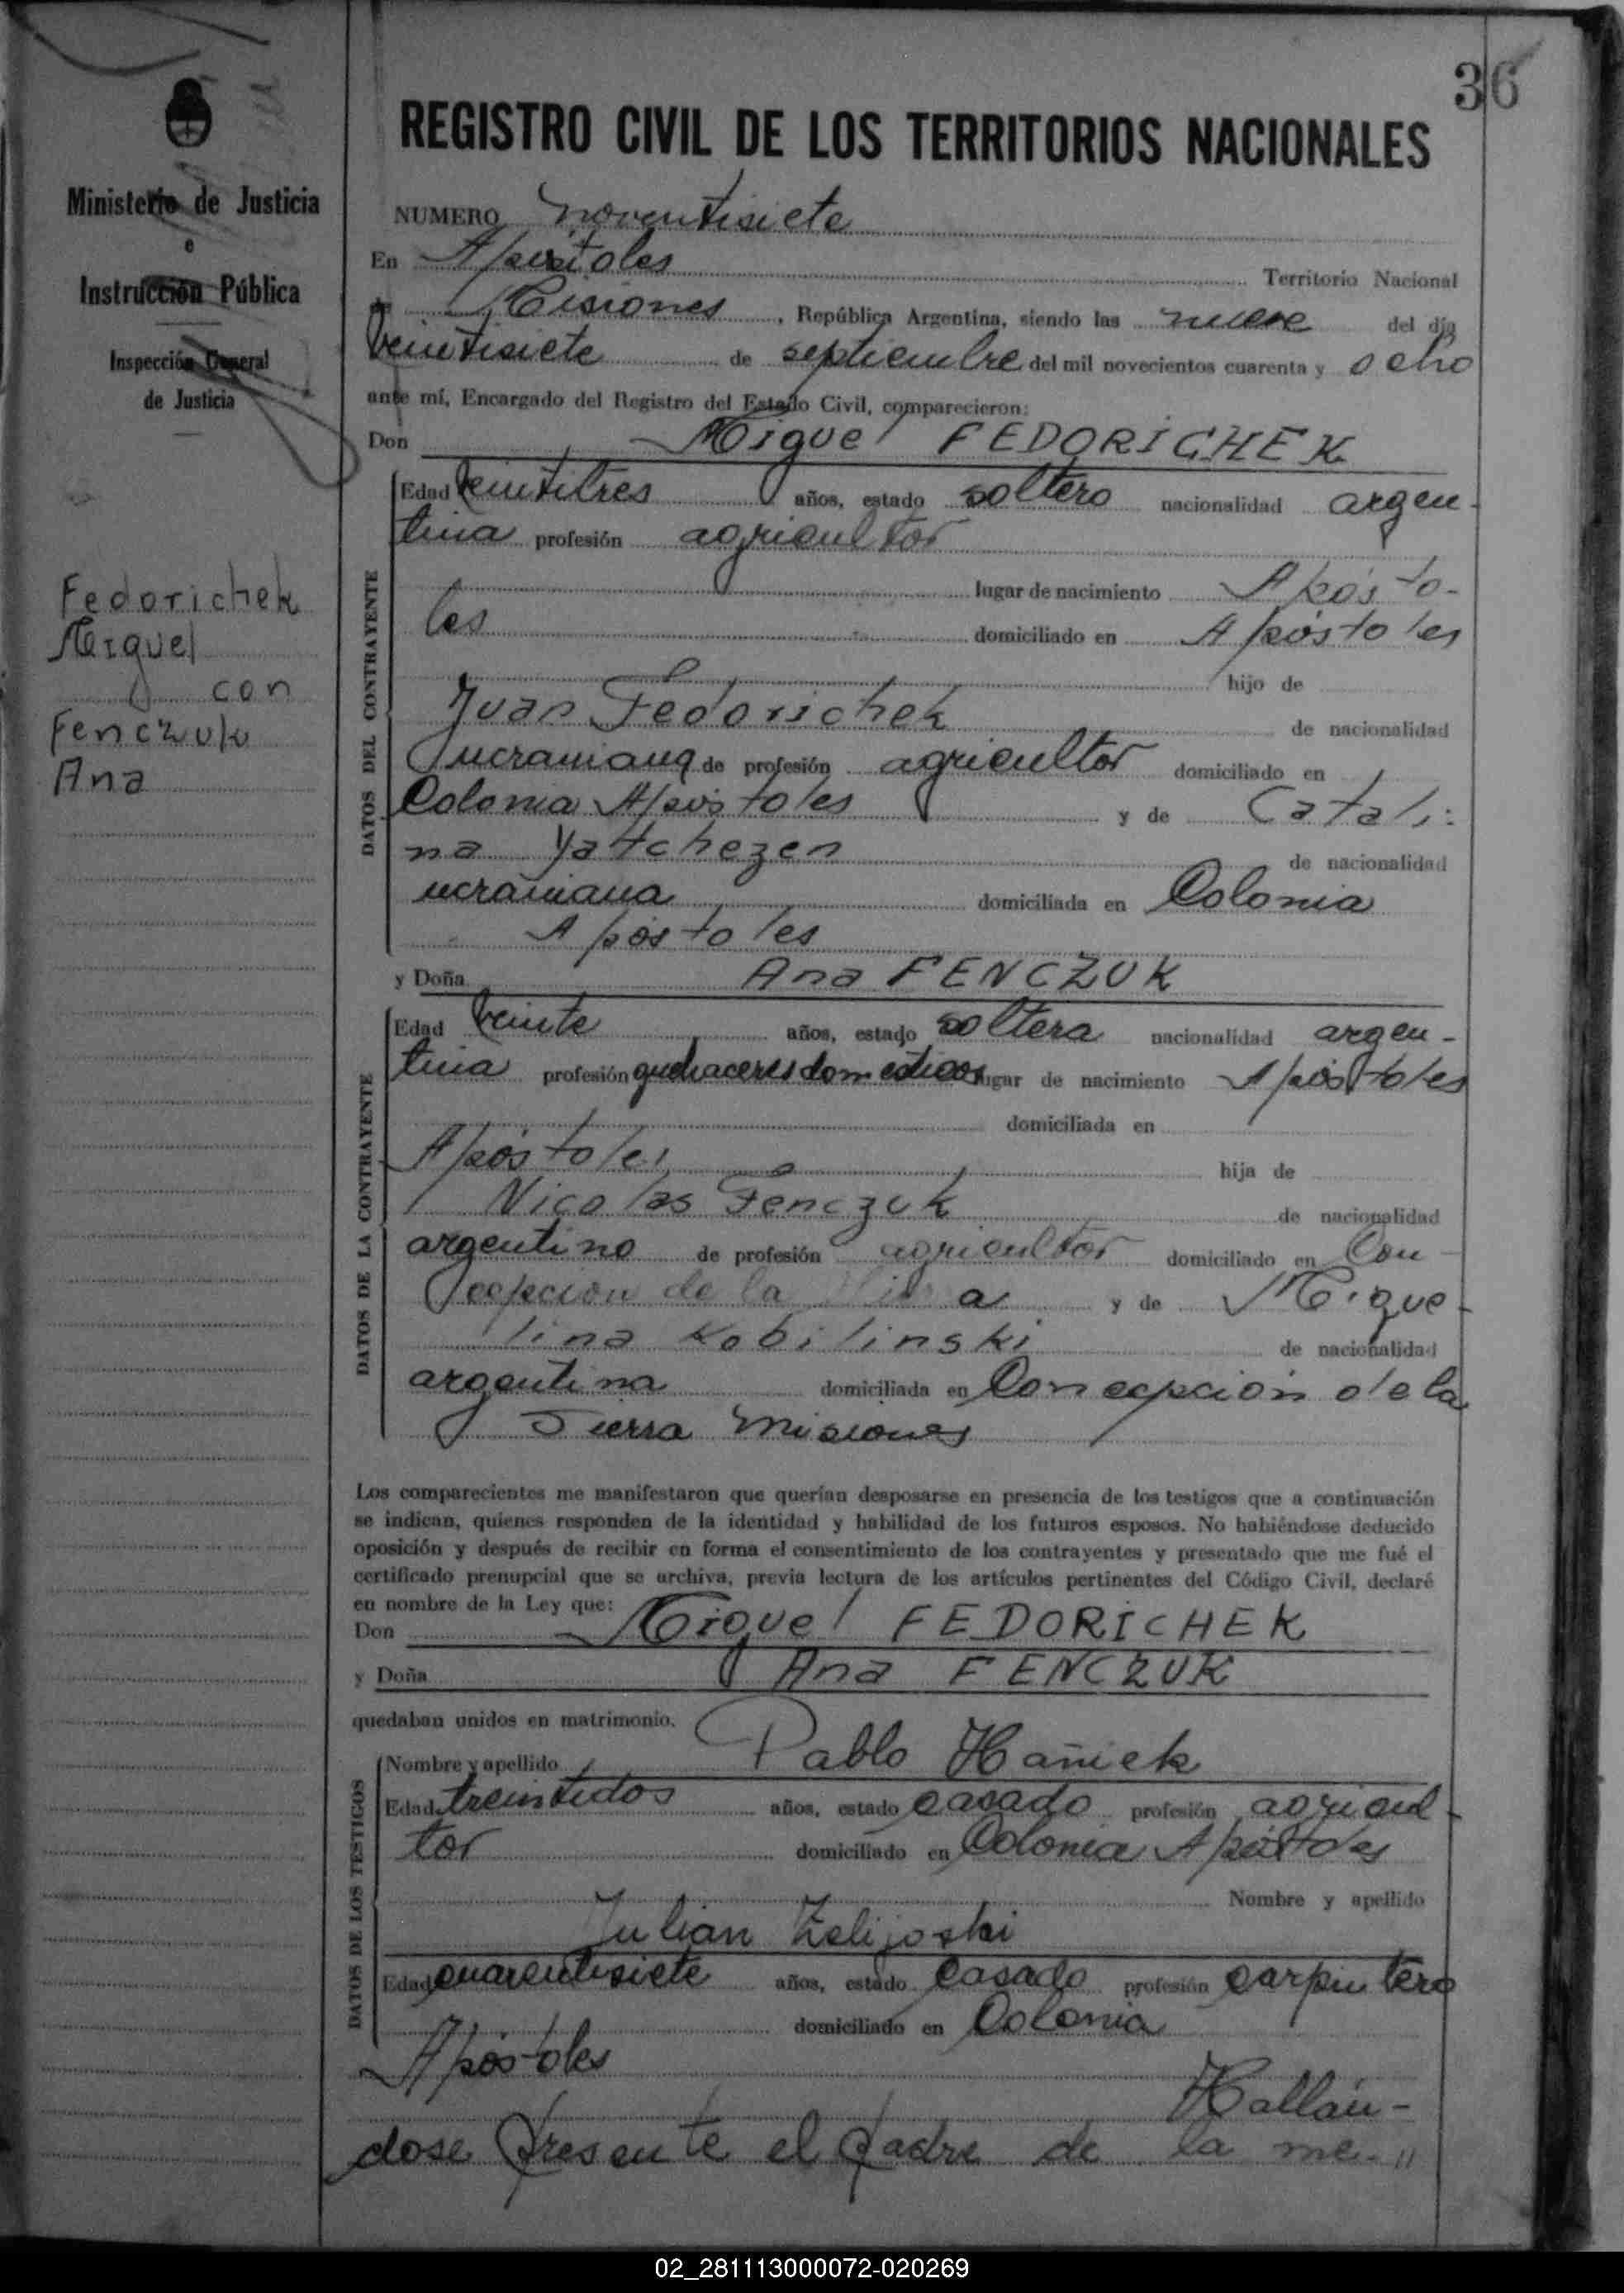 36
REGISTRO CIVIL DE LOS TERRITORIOS NACIONALES
Ministerio de Justicia
e
Instrucción Pública
Inspección General
de Justicia
Fedorichek
Miguel
con
Fenczuk
Ana
NUMERO noventisiete
En Apóstoles Territorio Nacional
de Misiones, República Argentina, siendo las nueve del día
veintisiete de septiembre del mil novecientos cuarenta y ocho
ante mí, Encargado del Registro del Estado Civil, comparecieron:
Don Miguel FEDORICHEK
DATOS DEL CONTRAYENTE
Edad veintitres años, estado soltero nacionalidad argen-
tina profesión agricultor
lugar de nacimiento Apósto-
les domiciliado en Apóstoles
hijo de
Juan Fedorichek de nacionalidad
ucraniana de profesión agricultor domiciliado en
Colonia Apóstoles y de Catali-
na Yatchezen de nacionalidad
ucraniana domiciliada en Colonia
Apóstoles
y Doña Ana FENCZUK
DATOS DE LA CONTRAYENTE
Edad veinte años, estado soltera nacionalidad argen-
tina profesión quehaceres domésticos lugar de nacimiento Apóstoles
domiciliada en
Apóstoles hija de
Nicolas Fenczuk de nacionalidad
argentino de profesión agricultor domiciliado en Con-
cepcion de la Sierra y de Migue-
lina Kobilinski de nacionalidad
argentina domiciliada en Concepción de la
Sierra Misiones
Los comparecientes me manifestaron que querían desposarse en presencia de los testigos que a continuación
se indican, quienes responden de la identidad y habilidad de los futuros esposos. No habiéndose deducido
oposición y después de recibir en forma el consentimiento de los contrayentes y presentado que me fué el
certificado prenupcial que se archiva, previa lectura de los artículos pertinentes del Código Civil, declaré
en nombre de la Ley que:
Don Miguel FEDORICHEK
y Doña Ana FENCZUK
quedaban unidos en matrimonio.
DATOS DE LOS TESTIGOS
Nombre y apellido Pablo Hañiek
Edad treintidos años, estado casado profesión agricul-
tor domiciliado en Colonia Apóstoles
Nombre y apellido
Julian Zelijoski
Edad cuarentisiete años, estado casado profesión carpintero
domiciliado en Colonia
Apóstoles
Hallán-
dose presente el padre de la me-"
02_281113000072-020269